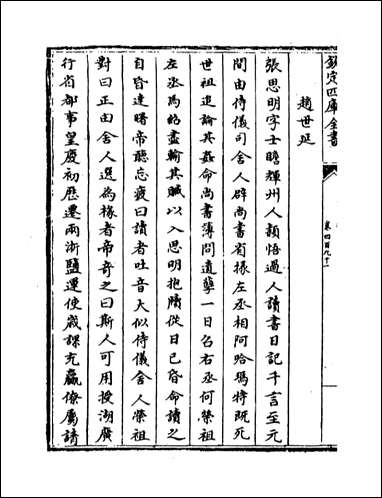 欽定四庫全書
卷四百九十一
趙世延
張思明字士瞻輝州人頴悟過人讀書日記千言至元
間由侍儀司舍人辟尚書省掾左丞相阿哈瑪特既死
世祖追論其姦命尚書簿問遺孽一日召右丞何榮祖
左丞馬紹盡輸其贓以入思明抱牘從日已昏命讀之
自昏達曙帝聽忘疲曰讀者吐音大似侍儀舍人榮祖
對曰正由舍人選為掾者帝奇之曰斯人可用授湖廣
行省都事皇慶初歴遷兩浙鹽運使歳課充贏僚屬請